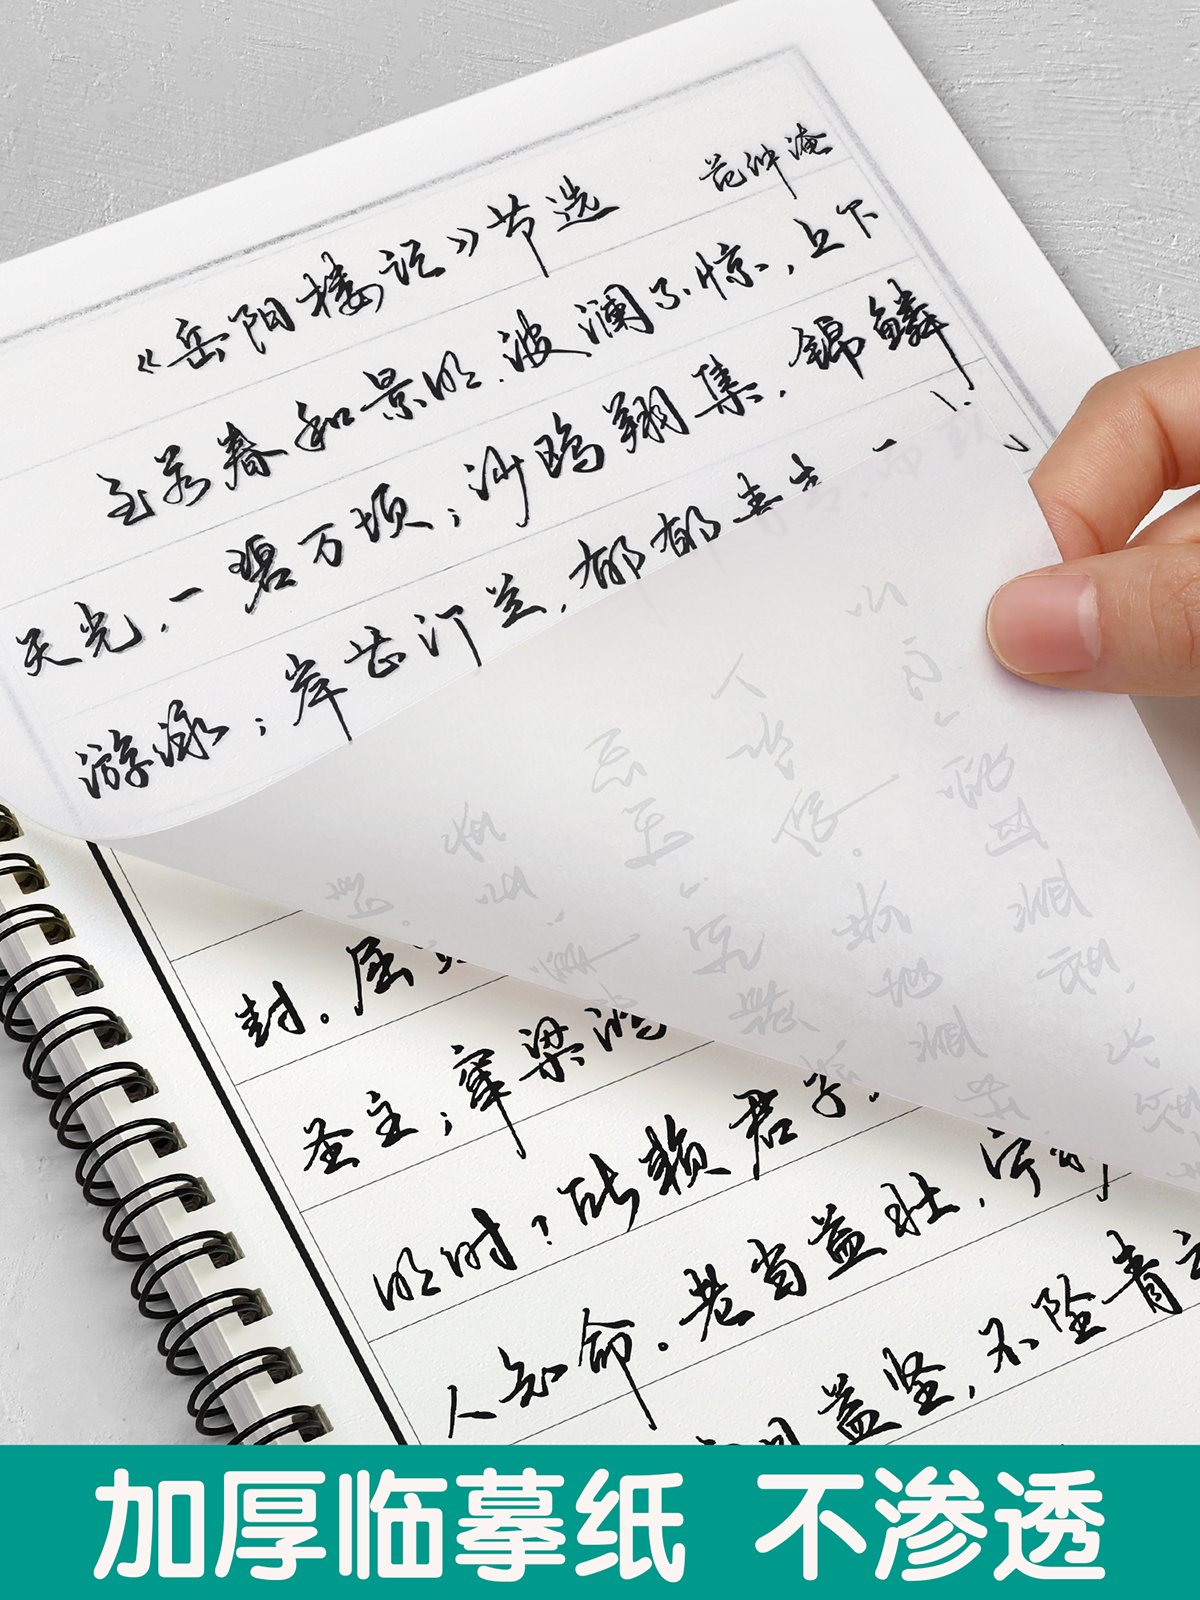 《岳阳楼记》节选
范仲淹
至若春和景明,波澜不惊,上下
天光,一碧万顷;沙鸥翔集,锦鳞
游泳;岸芷汀兰,郁郁青青
封。屈
圣主;窜梁鸿
明时?所赖君子
人知命。老当益壮,宁
益坚,不坠青云
加厚临摹纸 不渗透